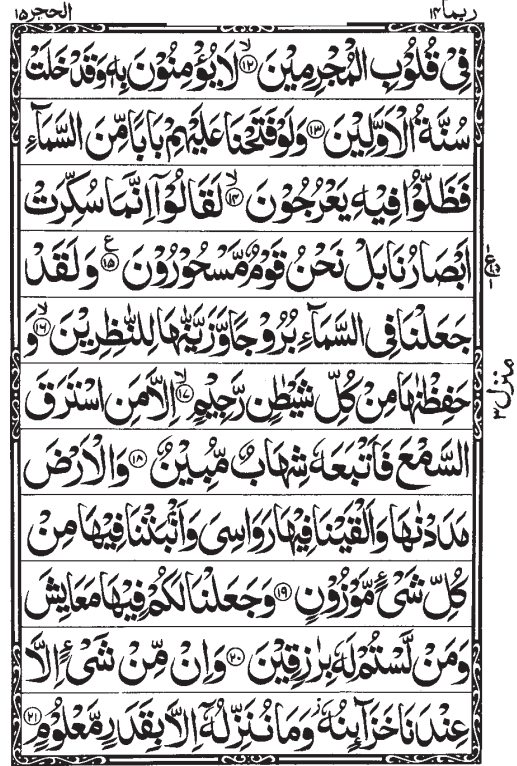 ربما ١٤ الحجر ١٥
فِىْ قُلُوْبِ الْمُجْرِمِيْنَ ۙ‏﴿۱۲﴾ لَا يُؤْمِنُوْنَ بِهٖ وَقَدْ خَلَتْ
سُنَّةُ الْاَوَّلِيْنَ ﴿۱۳﴾ وَلَوْ فَتَحْنَا عَلَيْهِمْ بَابًا مِّنَ السَّمَآءِ
فَظَلُّوْا فِيْهِ يَعْرُجُوْنَ ۙ‏﴿۱۴﴾ لَقَالُوْۤا اِنَّمَا سُكِّرَتْ
اَبْصَارُنَا بَلْ نَحْنُ قَوْمٌ مَّسْحُوْرُوْنَ ﴿۱۵﴾ ع وَلَقَدْ
جَعَلْنَا فِى السَّمَآءِ بُرُوْجًا وَّزَيَّنّٰهَا لِلنّٰظِرِيْنَ ۙ‏﴿۱۶﴾ وَ
حَفِظْنٰهَا مِنْ كُلِّ شَيْطٰنٍ رَّجِيْمٍ ۙ‏﴿۱۷﴾ اِلَّا مَنِ اسْتَرَقَ
السَّمْعَ فَاَتْبَعَهٗ شِهَابٌ مُّبِيْنٌ ﴿۱۸﴾ وَالْاَرْضَ
مَدَدْنٰهَا وَاَلْقَيْنَا فِيْهَا رَوَاسِىَ وَاَنْۢبَتْنَا فِيْهَا مِنْ
كُلِّ شَىْءٍ مَّوْزُوْنٍ ﴿۱۹﴾ وَجَعَلْنَا لَكُمْ فِيْهَا مَعَايِشَ
وَمَنْ لَّسْتُمْ لَهٗ بِرٰزِقِيْنَ ﴿۲۰﴾ وَاِنْ مِّنْ شَىْءٍ اِلَّا
عِنْدَنَا خَزَآئِنُهٗ ز وَمَا نُنَزِّلُهٗۤ اِلَّا بِقَدَرٍ مَّعْلُوْمٍ ﴿۲۱﴾
منزل ۳